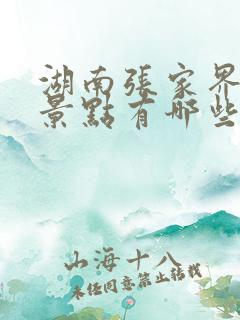 湖南張家界
景點有哪些
山海十八
未經同意禁止轉載